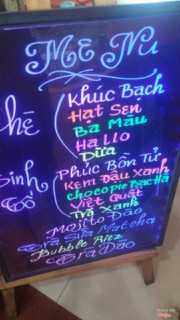 ME NU
chè
Khúc Bạch
Hạt Sen
Ba Màu
Hallo
Dừa
Sinh Tố
Phúc Bồn Tử
Kem Đậu Xanh
chocopie Bạc Hà
Việt Quất
Trà Xanh
Mojito Đào
Trà Sữa Matcha
Bubble Ritz
Trà Đào